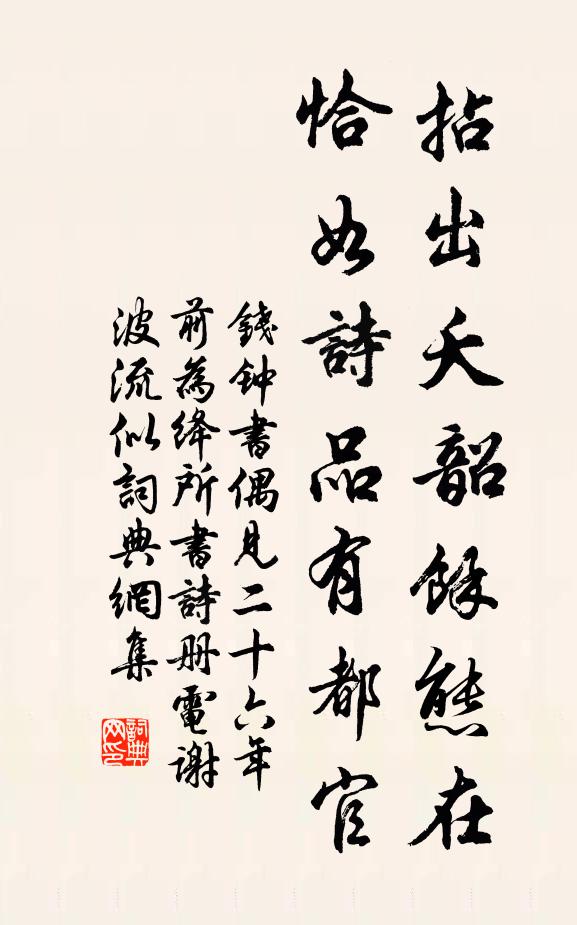 拈出夭韶餘態在
恰如詩品有都官
錢钟書偶見二十六年
前為绛所書詩册電謝
波流似詞典網集
詞典
网印